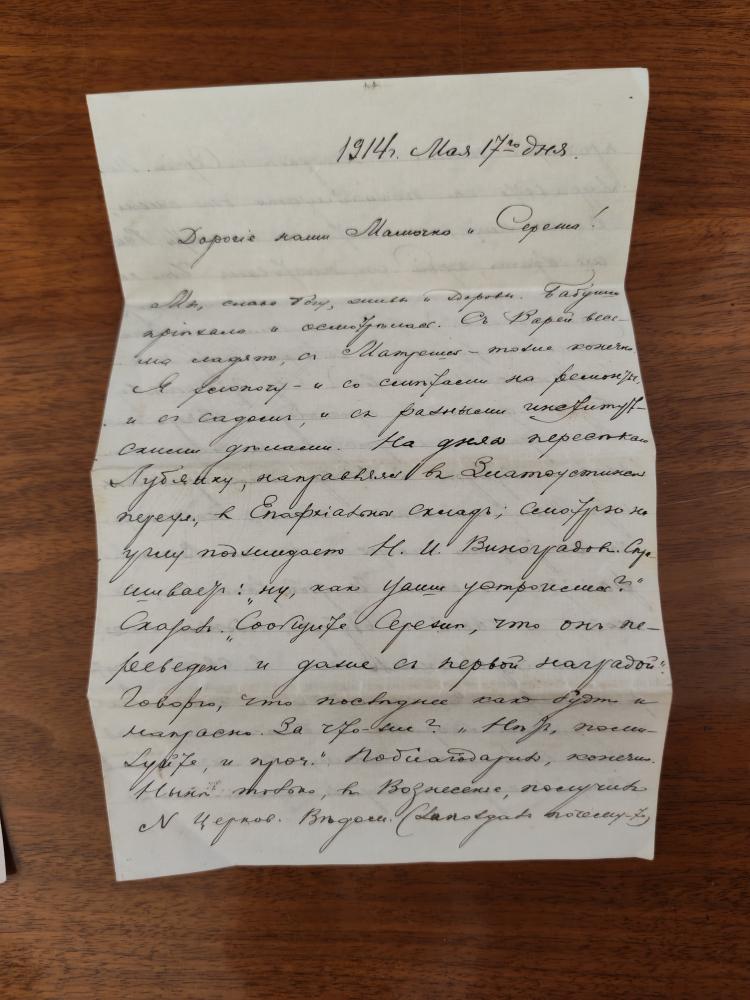 1914 г. Мая 17го дня.
Дорогіе наши Мамочка и Сережа!
Мы, слава Богу, живы и здоровы. Бабушка
пріѣхала и осмотрѣлась. Съ Варей весь-
ма ладятъ, съ Матрешей – тоже конечно.
Я хлопочу – и со смѣтами на ремонты,
и съ садомъ, и съ разными институт-
скими дѣлами. На дняхъ пересѣкаю
Лубянку, направляясь въ Златоустинск
переул., въ Епархіальный складъ; смотрю на
углу поджидаетъ Н. И. Виноградовъ. Спра
шиваетъ: „ну, какъ Ваши устроились?"
Сказалъ. „Сообщите Сережѣ, что онъ пе-
реведенъ и даже съ первой наградой".
Говорю, что послѣднее какъ будто и
напрасно. За что-же? „Нѣтъ, поми-
луйте, и проч." Поблагодарилъ, конечно.
Нынѣ только, въ Вознесенье, получилъ
N Церков. Вѣдом. (запоздалъ почему-то)